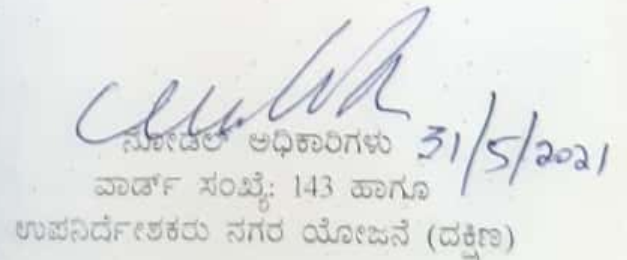 ನೋಡಲ್ ಅಧಿಕಾರಿಗಳು 31/5/2021
ವಾರ್ಡ್ ಸಂಖ್ಯೆ: 143 ಹಾಗೂ
ಉಪನಿರ್ದೇಶಕರು ನಗರ ಯೋಜನೆ (ದಕ್ಷಿಣ)